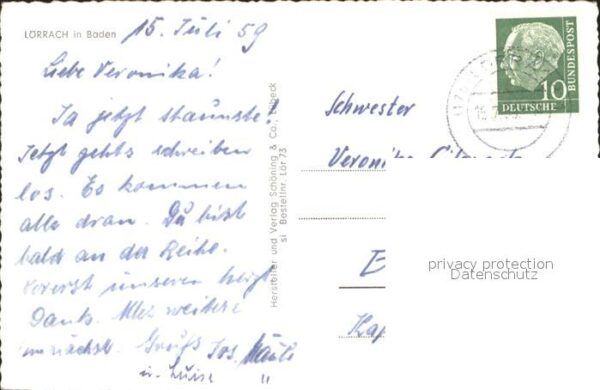 LÖRRACH in Baden
15. Juli 59
Liebe Veronika!
Ja jetzt staunste!
Jetzt gehts schreiben
los. Es kommen
alle dran. Du bist
bald an der Reihe.
Vorerst unseren herzl.
Dank. Alles weitere
im nächst. Grüße Jos.
u. Luise "
Hersteller und Verlag Schöning & Co., Lübeck
si Bestellnr. Lör 73
10
DEUTSCHE
BUNDESPOST
Schwester
Veronika
E
Kap
privacy protection
Datenschutz